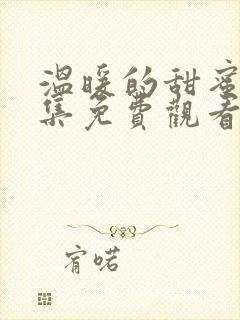 温暖的甜蜜
集免費觀看
宥喏